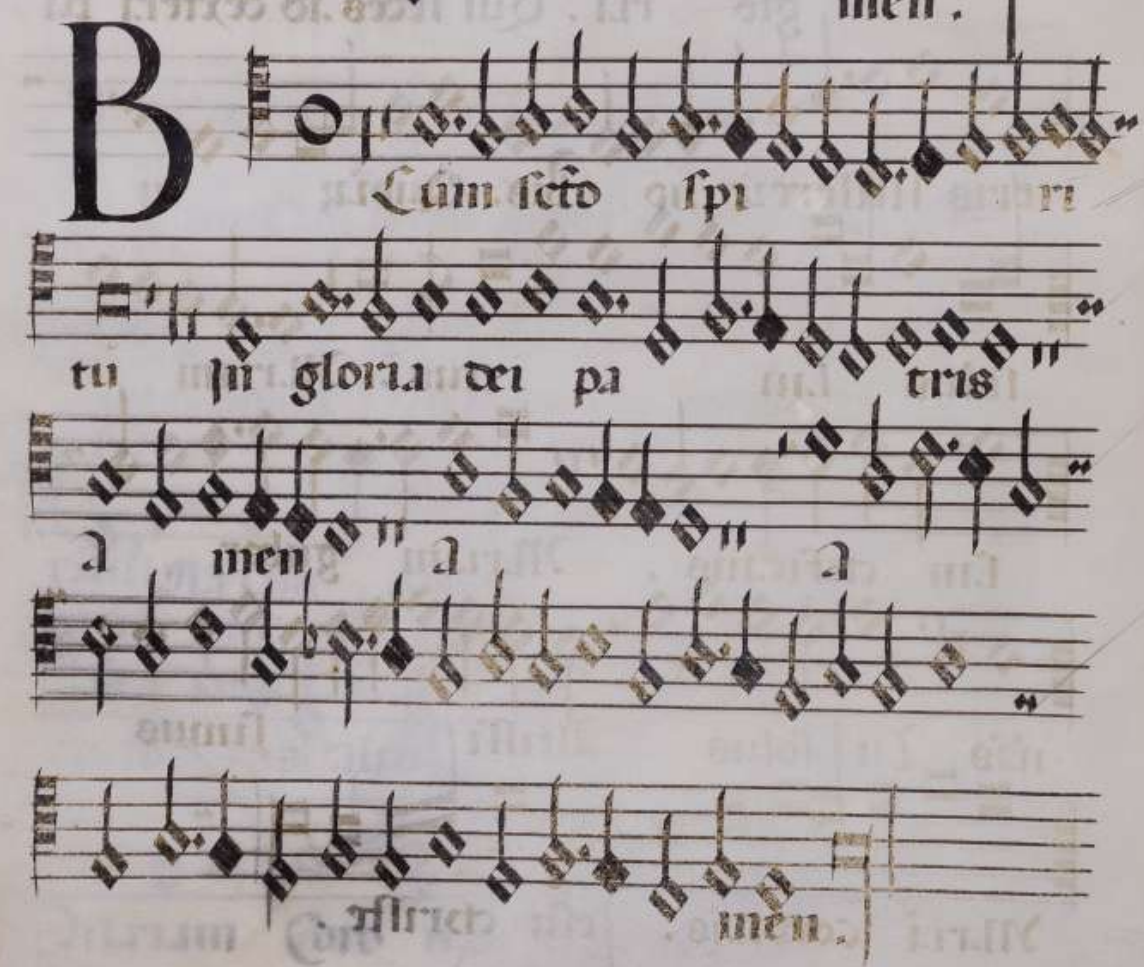 men.
B
Cum scto spi ri
tu In gloria dei pa tris
A men A A
men.